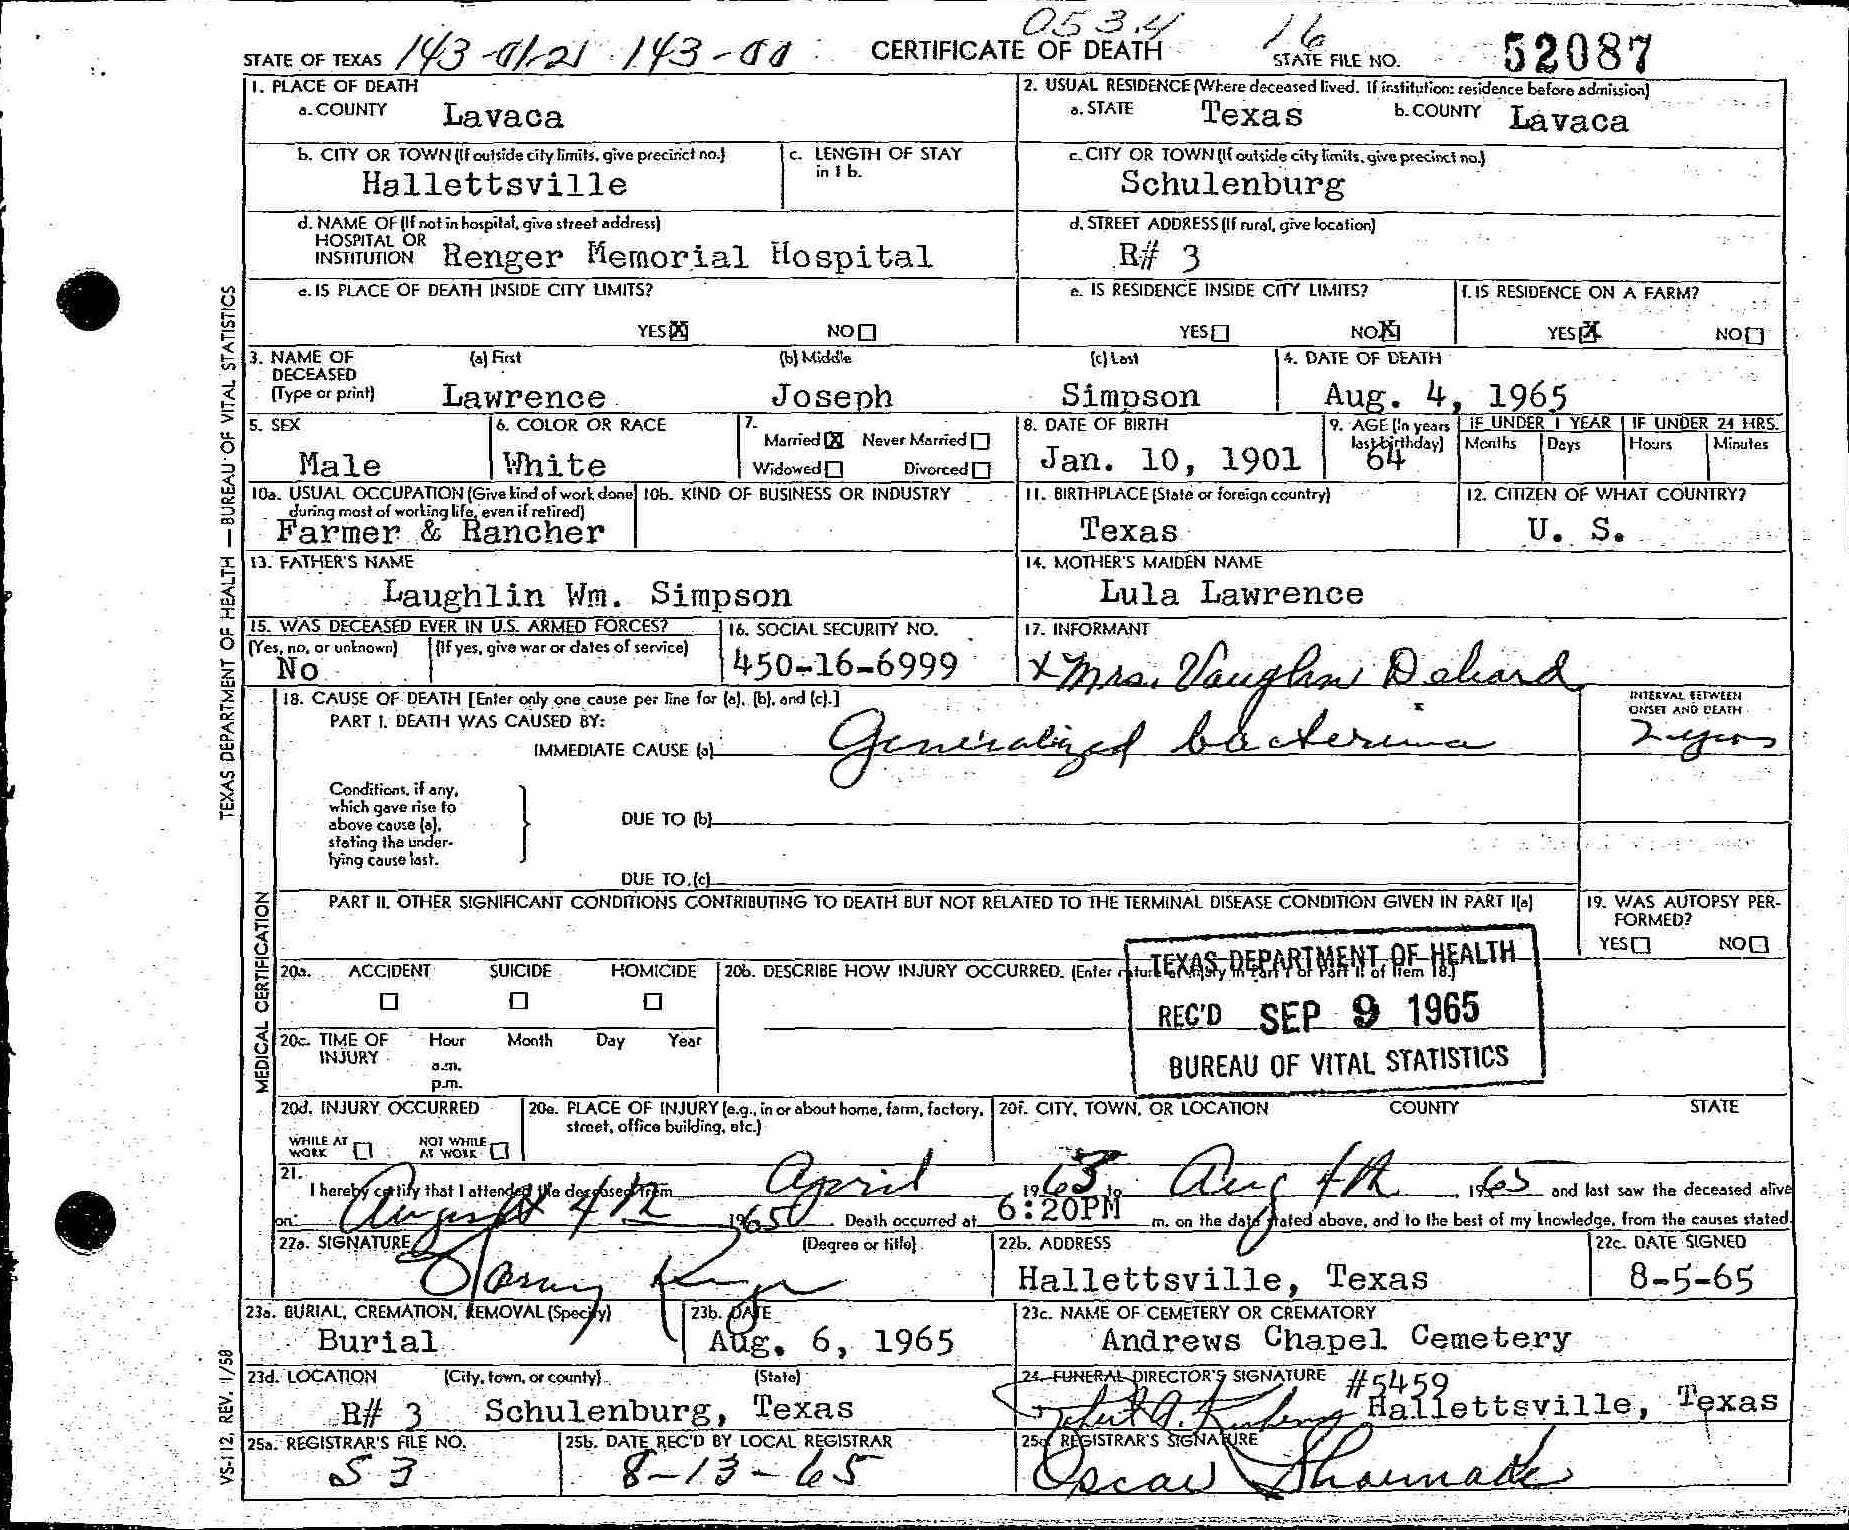 0534 16
STATE OF TEXAS 143-01-21 143-00 CERTIFICATE OF DEATH STATE FILE NO. 52087
1. PLACE OF DEATH
a. COUNTY Lavaca
2. USUAL RESIDENCE (Where deceased lived. If institution: residence before admission)
a. STATE Texas b. COUNTY Lavaca
b. CITY OR TOWN (If outside city limits, give precinct no.)
Hallettsville
c. LENGTH OF STAY
in 1 b.
c. CITY OR TOWN (If outside city limits, give precinct no.)
Schulenburg
d. NAME OF (If not in hospital, give street address)
HOSPITAL OR
INSTITUTION Renger Memorial Hospital
d. STREET ADDRESS (If rural, give location)
R# 3
e. IS PLACE OF DEATH INSIDE CITY LIMITS?
YES X NO
e. IS RESIDENCE INSIDE CITY LIMITS?
YES NO X
f. IS RESIDENCE ON A FARM?
YES X NO
3. NAME OF (a) First (b) Middle (c) Last
DECEASED
(Type or print) Lawrence Joseph Simpson
4. DATE OF DEATH
Aug. 4, 1965
5. SEX
Male
6. COLOR OR RACE
White
7.
Married X Never Married
Widowed Divorced
8. DATE OF BIRTH
Jan. 10, 1901
9. AGE (In years
last birthday)
64
IF UNDER 1 YEAR
Months Days
IF UNDER 24 HRS.
Hours Minutes
10a. USUAL OCCUPATION (Give kind of work done
during most of working life, even if retired)
Farmer & Rancher
10b. KIND OF BUSINESS OR INDUSTRY
11. BIRTHPLACE (State or foreign country)
Texas
12. CITIZEN OF WHAT COUNTRY?
U. S.
13. FATHER'S NAME
Laughlin Wm. Simpson
14. MOTHER'S MAIDEN NAME
Lula Lawrence
15. WAS DECEASED EVER IN U.S. ARMED FORCES?
(Yes, no, or unknown) (If yes, give war or dates of service)
No
16. SOCIAL SECURITY NO.
450-16-6999
17. INFORMANT
x Mrs. Vaughn
18. CAUSE OF DEATH [Enter only one cause per line for (a), (b), and (c).]
PART I. DEATH WAS CAUSED BY:
IMMEDIATE CAUSE (a) Generalized
INTERVAL BETWEEN
ONSET AND DEATH
2 years
Conditions, if any,
which gave rise to
above cause (a),
stating the under-
lying cause last.
DUE TO (b)
DUE TO (c)
PART II. OTHER SIGNIFICANT CONDITIONS CONTRIBUTING TO DEATH BUT NOT RELATED TO THE TERMINAL DISEASE CONDITION GIVEN IN PART I(a)
19. WAS AUTOPSY PER-
FORMED?
YES NO
20a. ACCIDENT SUICIDE HOMICIDE
20b. DESCRIBE HOW INJURY OCCURRED. (Enter nature of injury in Part I or Part II of Item 18.)
TEXAS DEPARTMENT OF HEALTH
REC'D SEP 9 1965
BUREAU OF VITAL STATISTICS
20c. TIME OF Hour Month Day Year
INJURY
a.m.
p.m.
20d. INJURY OCCURRED
WHILE AT WORK NOT WHILE AT WORK
20e. PLACE OF INJURY (e.g., in or about home, farm, factory,
street, office building, etc.)
20f. CITY, TOWN, OR LOCATION COUNTY STATE
21.
I hereby certify that I attended the deceased from April 1963 to Aug 4th, 1965 and last saw the deceased alive
on August 4th 1965. Death occurred at 6:20PM m. on the date stated above, and to the best of my knowledge, from the causes stated.
22a. SIGNATURE (Degree or title)
22b. ADDRESS
Hallettsville, Texas
22c. DATE SIGNED
8-5-65
23a. BURIAL, CREMATION, REMOVAL (Specify)
Burial
23b. DATE
Aug. 6, 1965
23c. NAME OF CEMETERY OR CREMATORY
Andrews Chapel Cemetery
23d. LOCATION (City, town, or county) (State)
R# 3 Schulenburg, Texas
24. FUNERAL DIRECTOR'S SIGNATURE #5459
Hallettsville, Texas
25a. REGISTRAR'S FILE NO.
53
25b. DATE REC'D BY LOCAL REGISTRAR
8-13-65
25c. REGISTRAR'S SIGNATURE
Oscar
TEXAS DEPARTMENT OF HEALTH — BUREAU OF VITAL STATISTICS
MEDICAL CERTIFICATION
VS-112, REV. 1/58